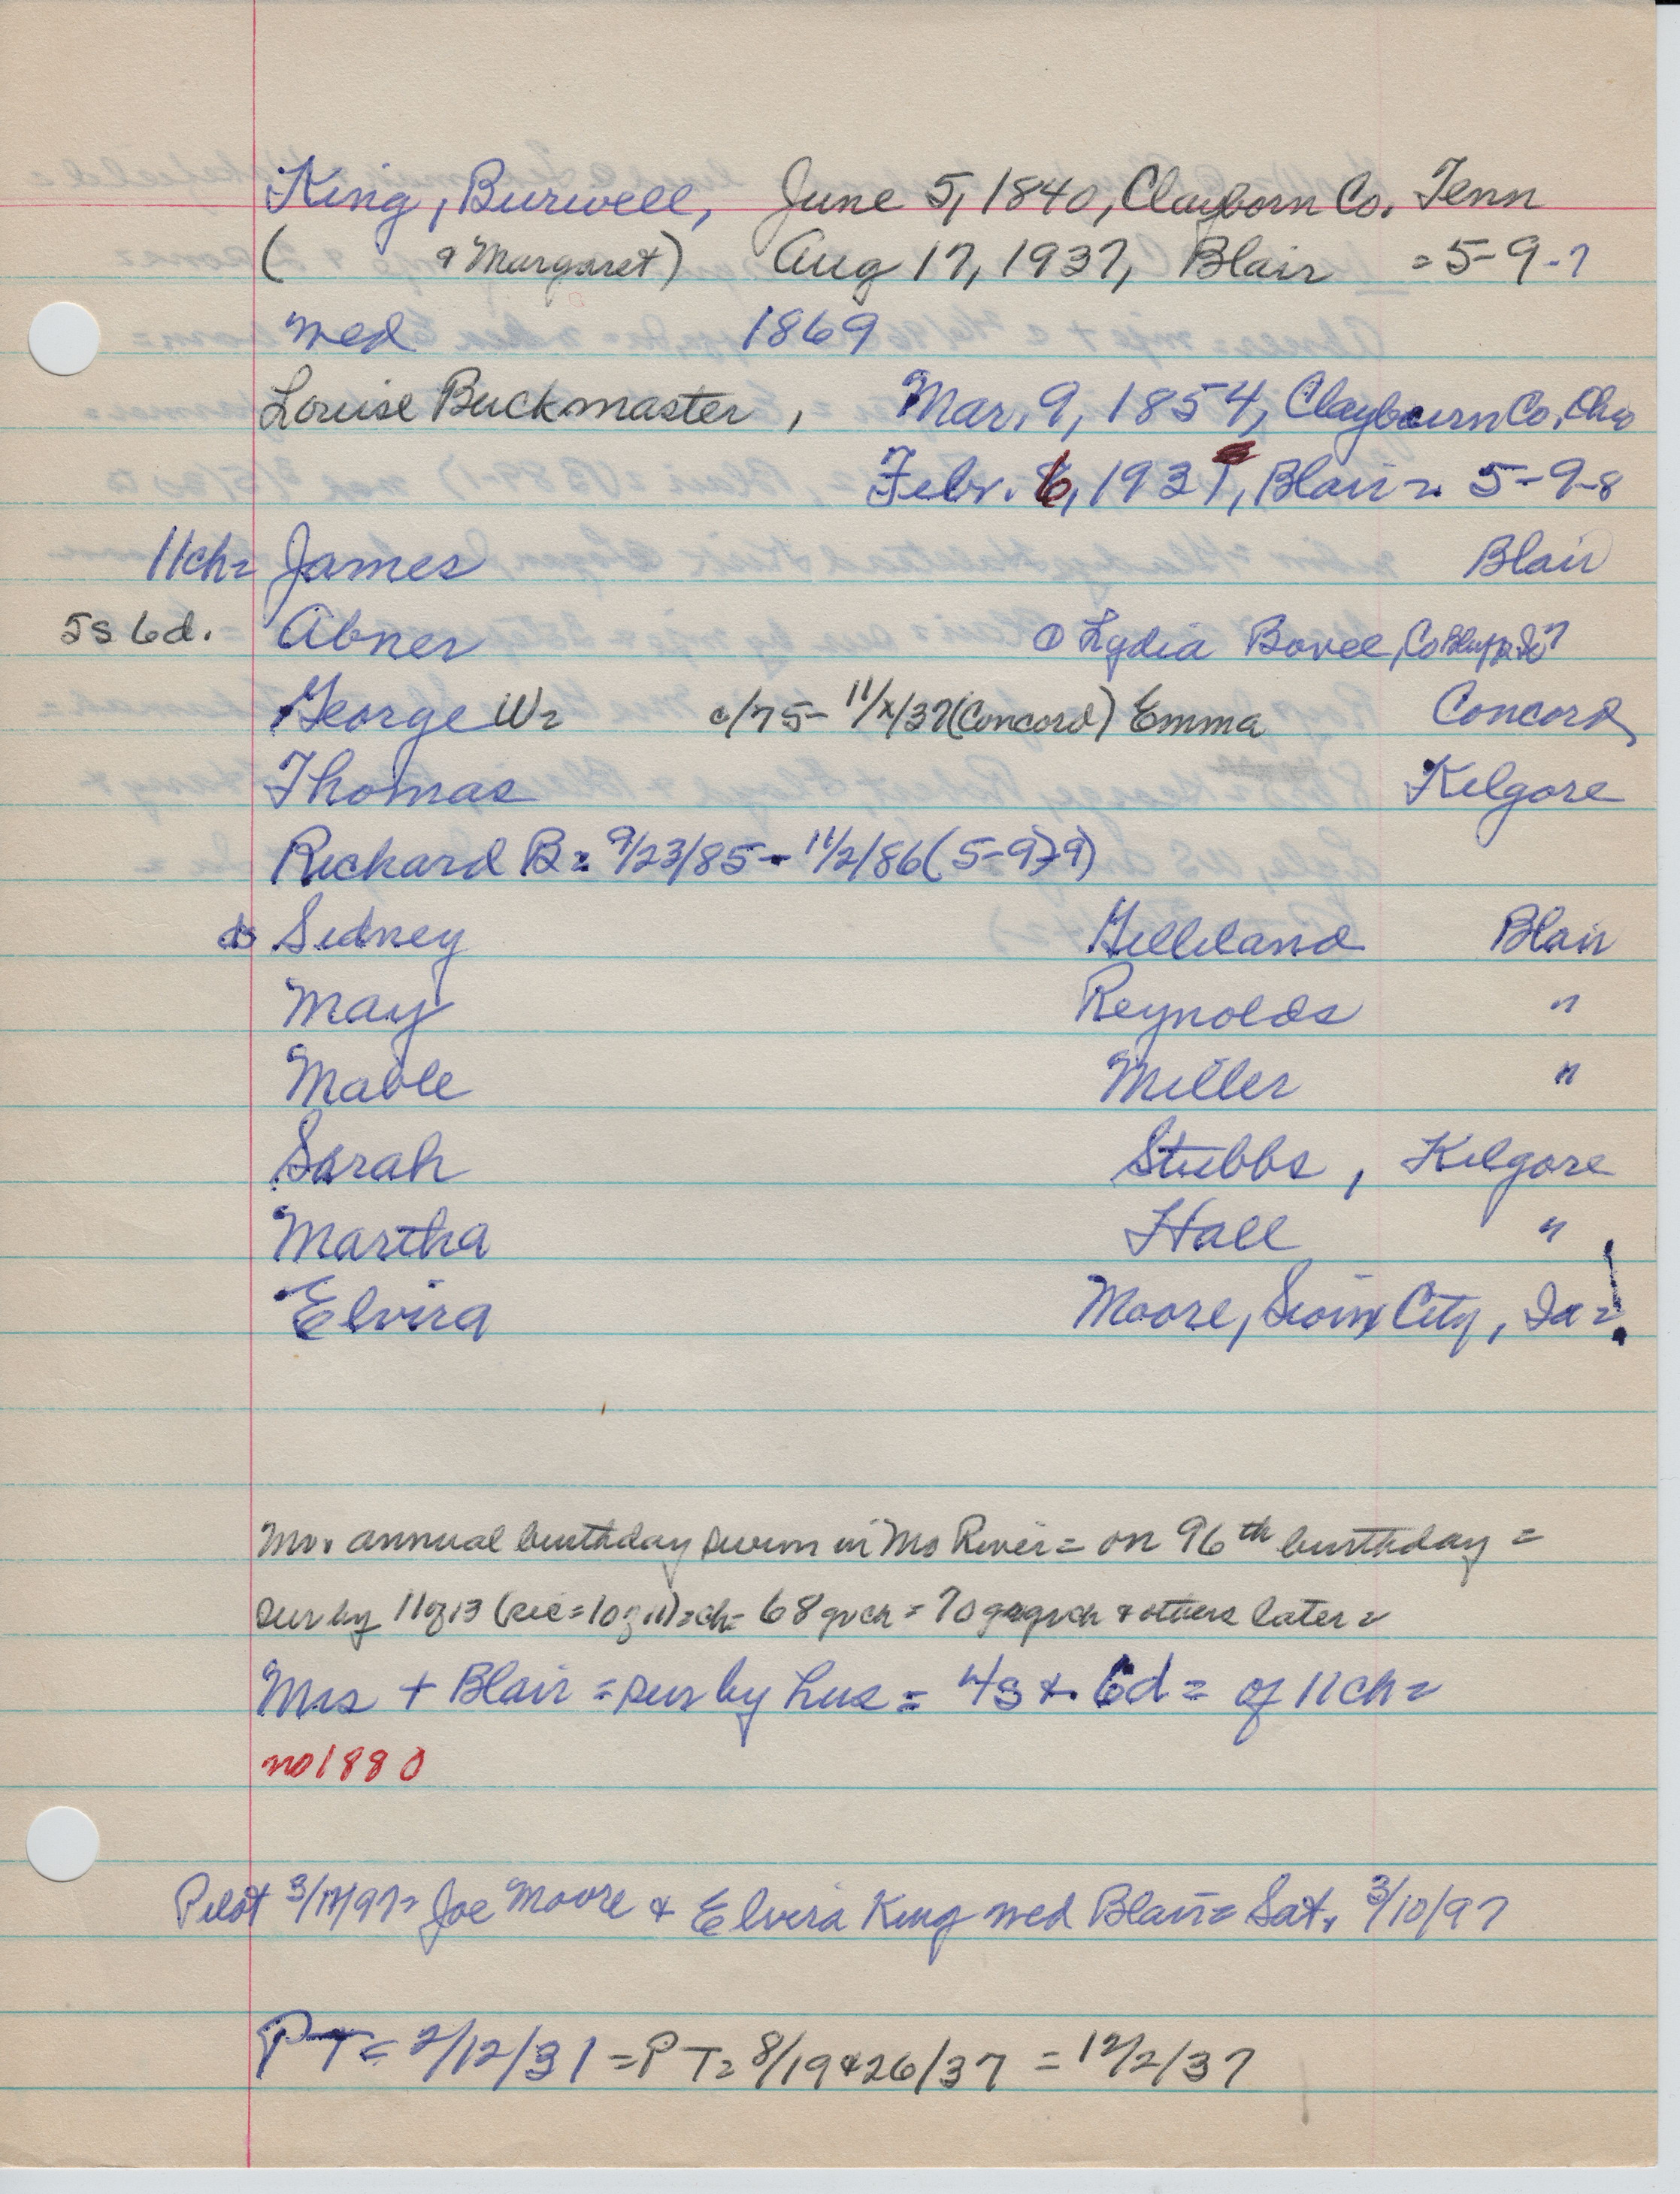 King, Burwell, June 5, 1840, Clayborn Co. Tenn
( & Margaret) Aug 17, 1937, Blair = 5-9-7
wed 1869
Louise Buckmaster, Mar. 9, 1854, Claybourn Co. Ohio
Febr. 6, 1931, Blair = 5-9-8
11ch= James Blair
5s 6d. Abner @ Lydia Bovee, Co Bluffs
George W= c/75- 11/x/37 (Concord) Emma Concord
Thomas Kilgore
Richard B = 9/23/85 - 11/2/86 (5-9-9)
ds Sidney Gilleland Blair
May Reynolds "
Mable Miller "
Sarah Stubbs, Kilgore
Martha Hall "
Elvira Moore, Sioux City, Ia = !
Mr. annual birthday swim in Mo River = on 96th birthday =
sur by 11 of 13 (sic = 10 of 11) = ch = 68 grch = 70 ggrch & others later =
Mrs + Blair = sur by hus = 4s & 6d = of 11 ch =
no 1880
Pilot 3/17/97 = Joe Moore & Elvira King wed Blair = Sat. 3/10/97
PT = 2/12/31 = PT = 8/19&26/37 = 12/2/37